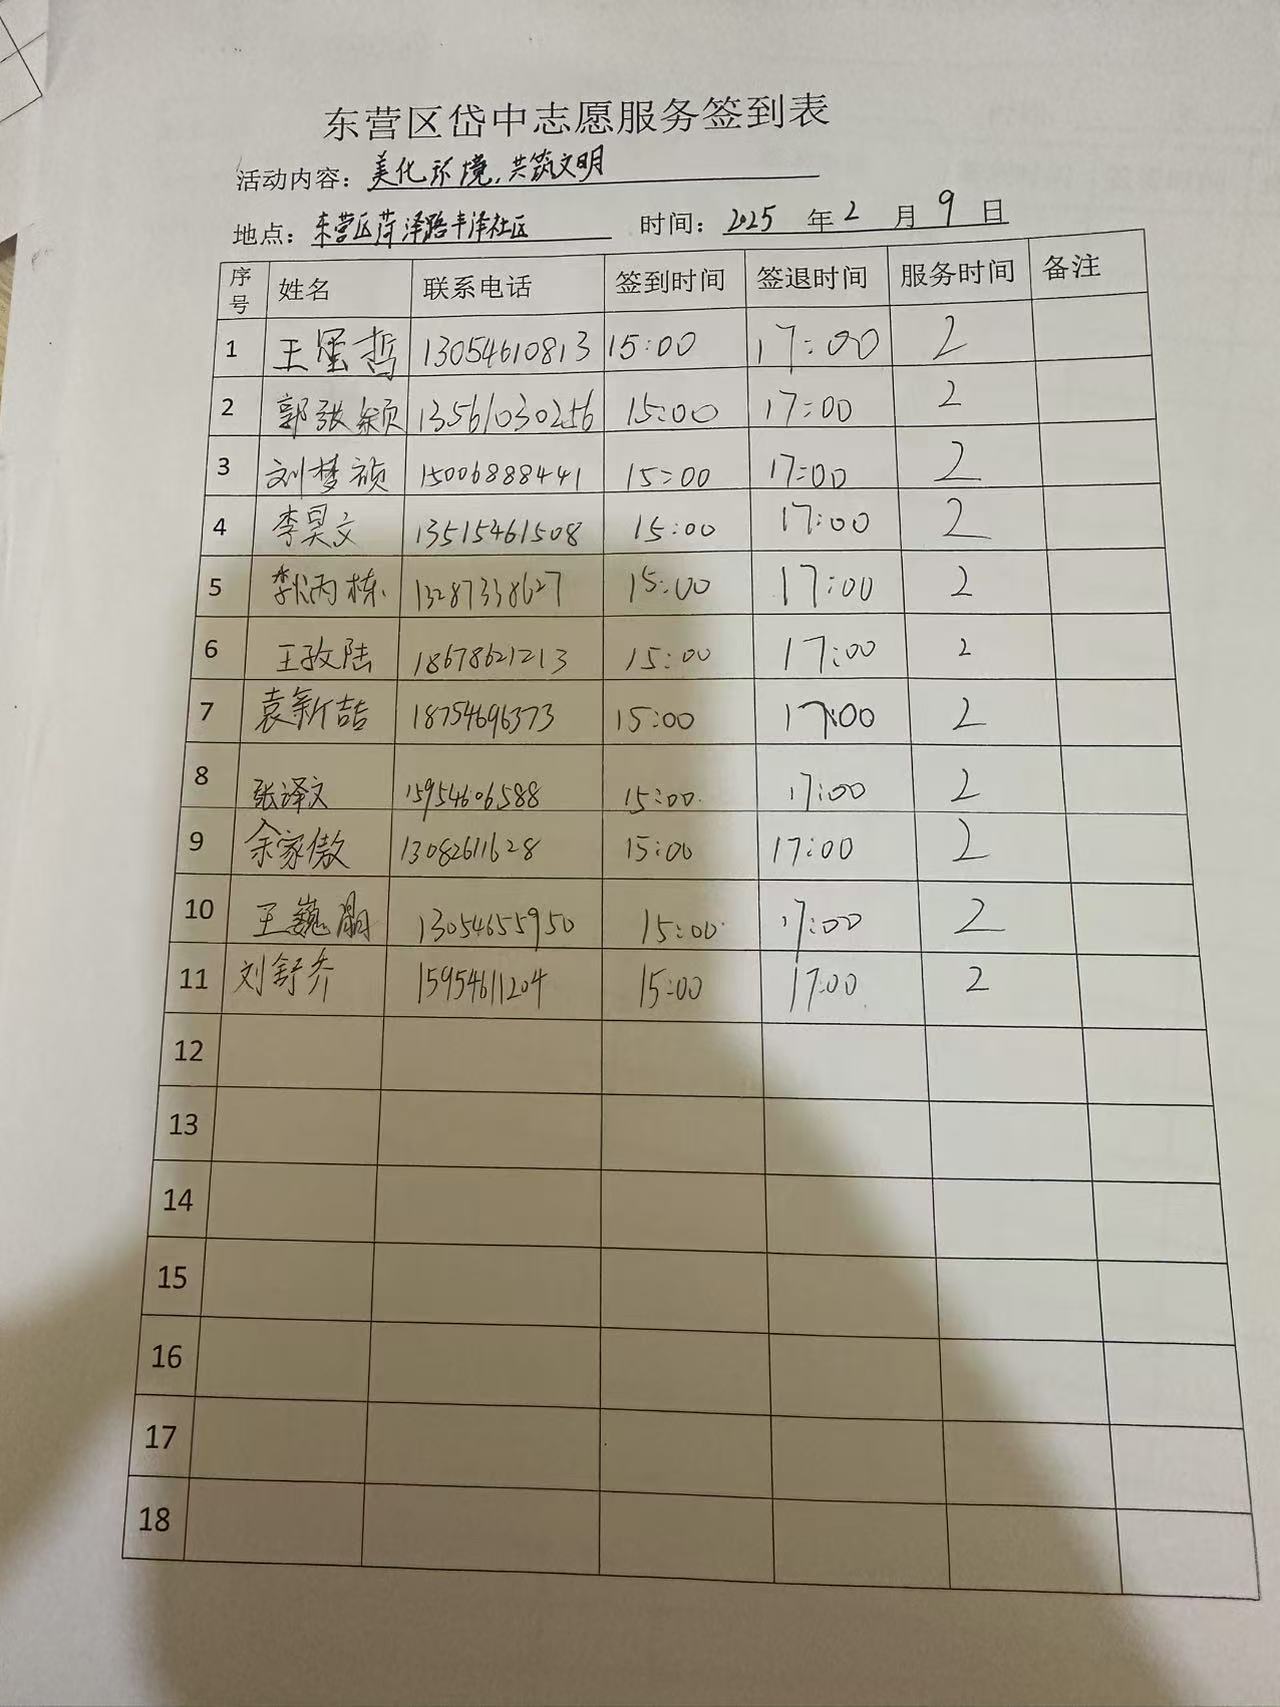 东营区岱中志愿服务签到表
活动内容：美化环境，共筑文明
地点：东营区菏泽路丰泽社区 时间：2025 年 2 月 9 日
序号 姓名 联系电话 签到时间 签退时间 服务时间 备注
1 王玺哲 13054610813 15:00 17:00 2
2 郭张颖 13561030256 15:00 17:00 2
3 刘梦祯 15006888441 15:00 17:00 2
4 李昊文 13515461508 15:00 17:00 2
5 李炳栋 13287338627 15:00 17:00 2
6 王孜陆 18678621213 15:00 17:00 2
7 袁新喆 18754696373 15:00 17:00 2
8 张译文 15954606588 15:00 17:00 2
9 余家傲 13082611628 15:00 17:00 2
10 王巍 13054655950 15:00 17:00 2
11 刘舒乔 15954611204 15:00 17:00 2
12
13
14
15
16
17
18